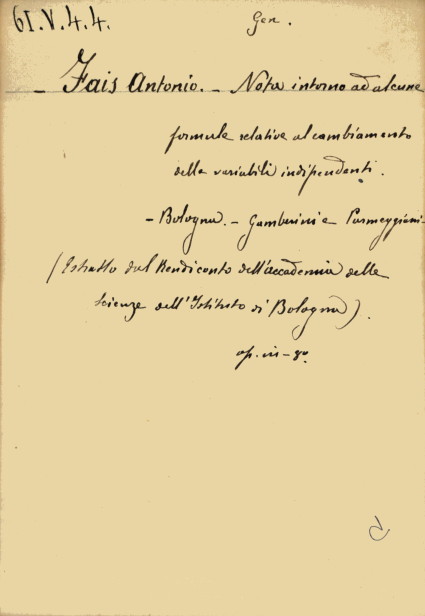 61.V.4.4.
Gen.
- Fais Antonio. - Nota intorno ad alcune
formule relative al cambiamento
delle variabili indipendenti.
- Bologna. - Gamberini e Parmeggiani -
(Estratto dal Rendiconto dell'accademia delle
scienze dell'Istituto di Bologna).
op. in-8º.